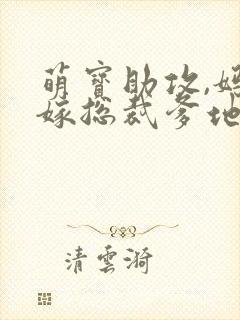 萌寶助攻,媽
嫁總裁爹地
清雲漪